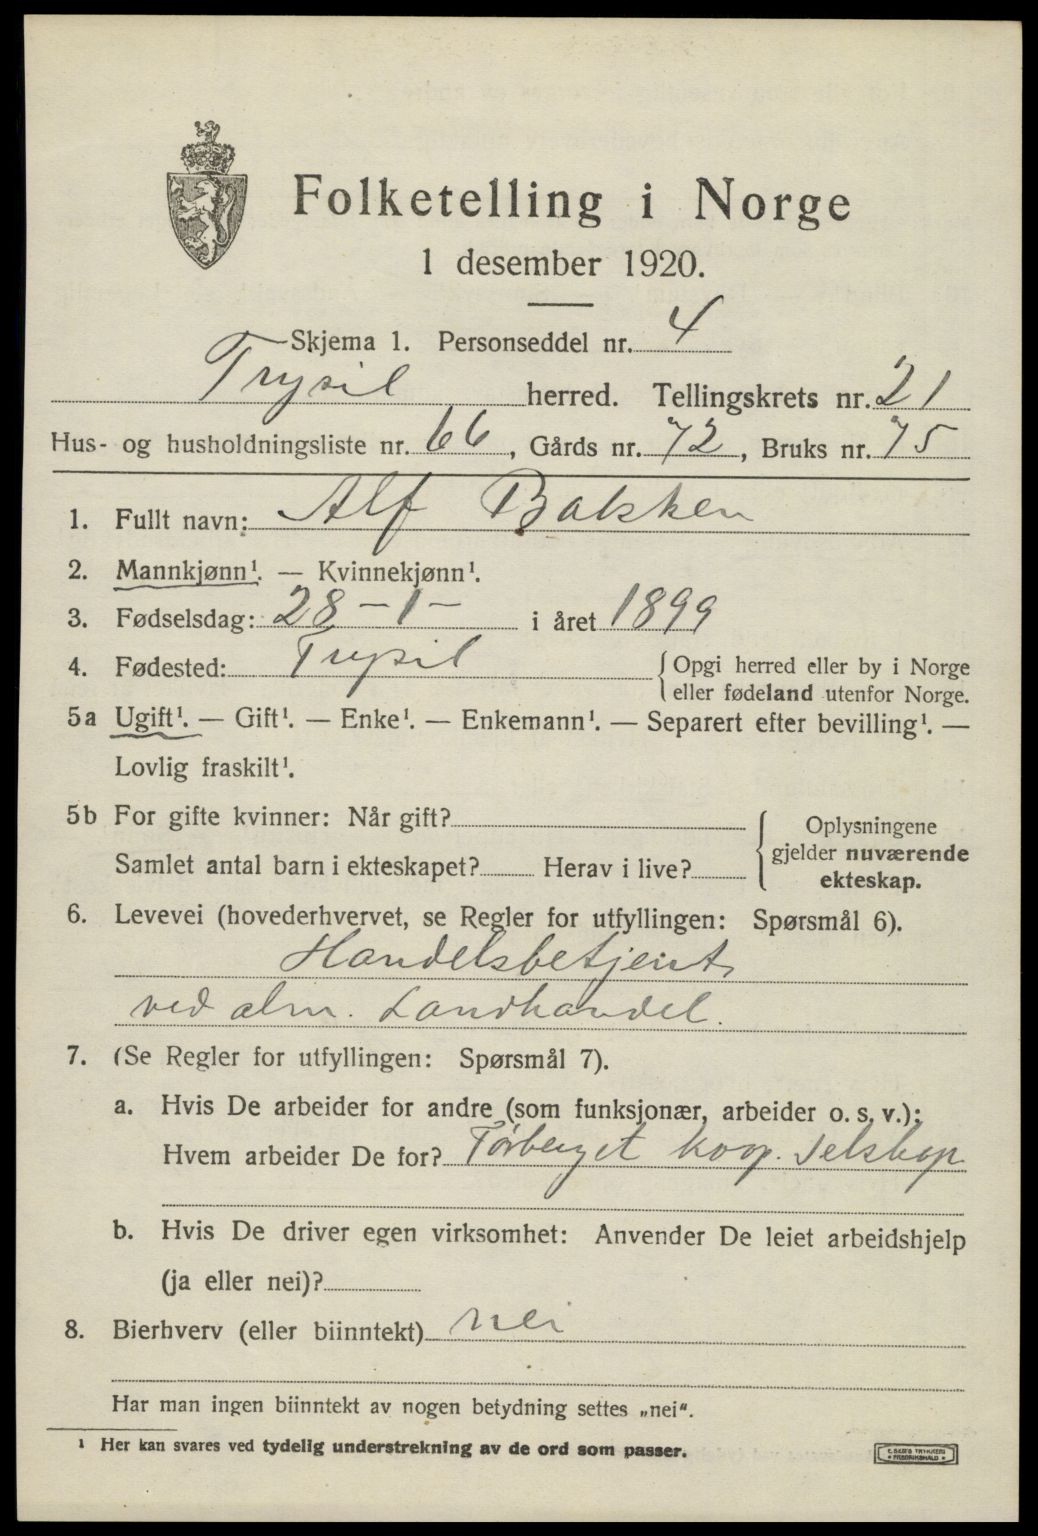 Folketelling i Norge
1 desember 1920.
Skjema 1. Personseddel nr. 4
Trysil herred. Tellingskrets nr. 21
Hus- og husholdningsliste nr. 66, Gårds nr. 72, Bruks nr. 75
1. Fullt navn: Alf Bakken
2. Mannkjønn¹. — Kvinnekjønn¹.
3. Fødselsdag: 28 - 1 - i året 1899
4. Fødested: Trysil {Opgi herred eller by i Norge
eller fødeland utenfor Norge.
5a Ugift¹. — Gift¹. — Enke¹. — Enkemann¹. — Separert efter bevilling¹. —
Lovlig fraskilt¹.
5b For gifte kvinner: Når gift? { Oplysningene
gjelder nuværende
Samlet antal barn i ekteskapet? Herav i live?
ekteskap.
6. Levevei (hovederhvervet, se Regler for utfyllingen: Spørsmål 6).
Handelsbetjent
ved alm. Landhandel.
7. (Se Regler for utfyllingen: Spørsmål 7).
a. Hvis De arbeider for andre (som funksjonær, arbeider o. s. v.):
Hvem arbeider De for? Tørberget koop. Selskap
b. Hvis De driver egen virksomhet: Anvender De leiet arbeidshjelp
(ja eller nei)?
8. Bierhverv (eller biinntekt) nei
Har man ingen biinntekt av nogen betydning settes „nei“.
¹ Her kan svares ved tydelig understrekning av de ord som passer.